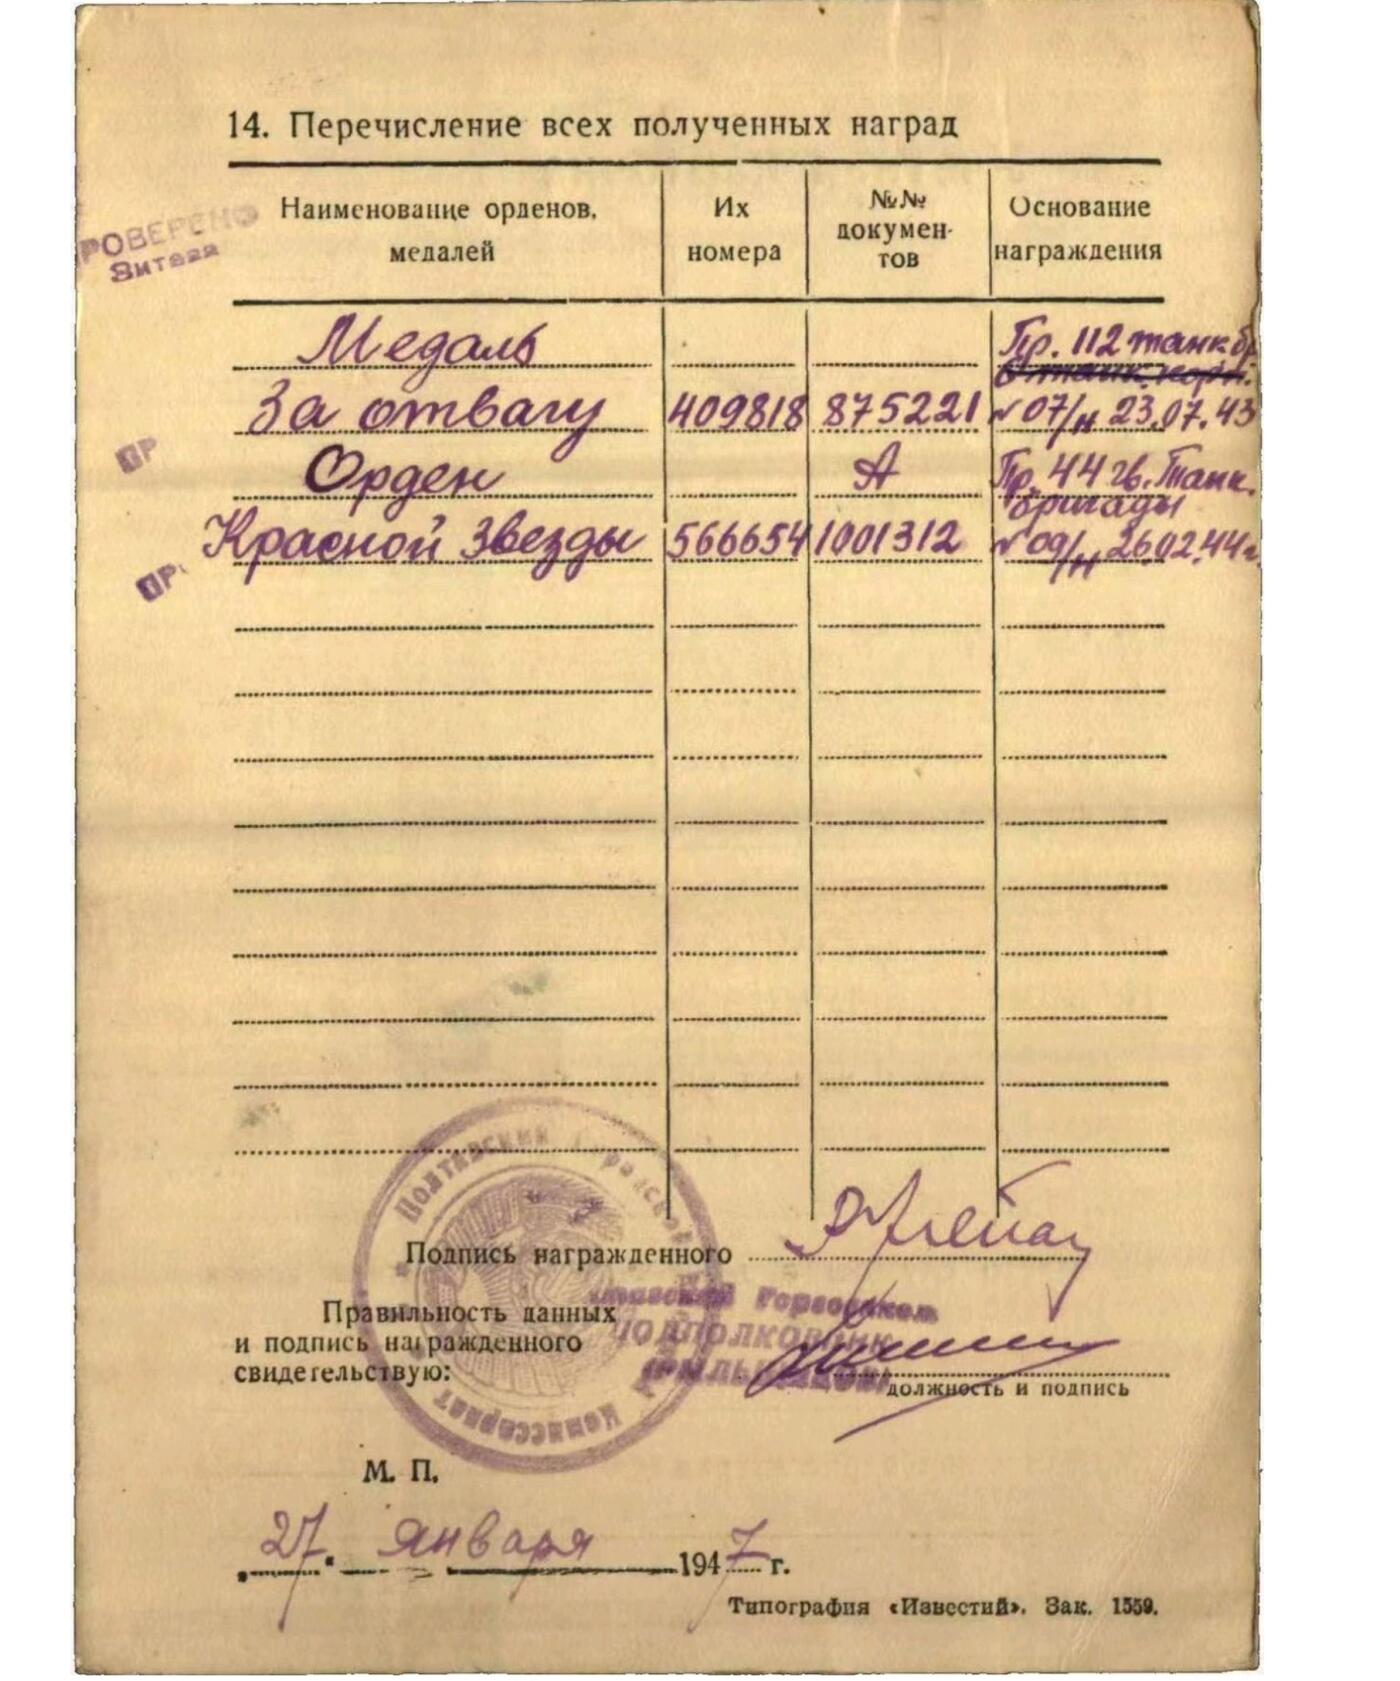 14. Перечисление всех полученных наград
Наименование орденов, медалей
Их номера
№№ докумен-тов
Основание награждения
РОВЕРЕНО
Медаль
Пр. 112 танк. бр
За отвагу 409818 875221 № 07/н 23.07.43
ПР
Орден А Пр. 44 гв. Танк.
бригады
Красной Звезды 566654 1001312 № 09/н 26.02.44г.
ПР
Полтавский
Комиссариат
Подпись награжденного
Горвоенком
Правильность данных
и подпись награжденного
свидетельствую:
ПОДПОЛКОВНИК
должность и подпись
М. П.
27. января 1947 г.
Типография «Известий». Зак. 1559.